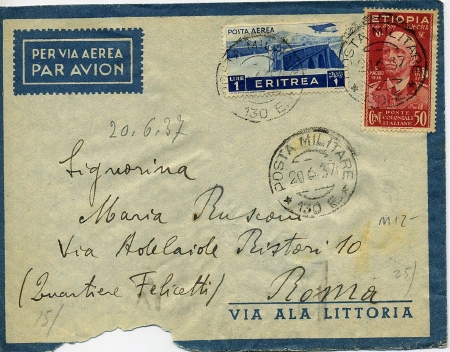 PER VIA AEREA
PAR AVION
POSTA AEREA
LIRE 1
1
ERITREA
ETIOPIA
POSTE
COLONIALI
ITALIANE
CMI 50
POSTA MILITARE
130 E.
POSTA MILITARE
20.6.37
POSTA MILITARE
20.6.37
130 E.
20.6.37
Signorina
Maria Rusconi
Via Adelaide Ristori 10
(Quartiere Felicetti) Roma
M12-
25/
15/
VIA ALA LITTORIA